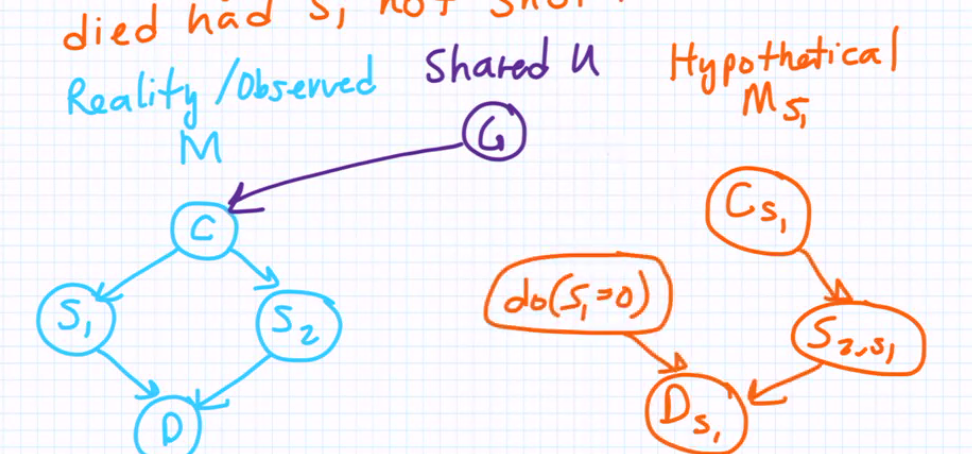 died had S₁ not shot.
Reality/Observed
M
Shared U
Hypothetical
M_S₁
G
C
S₁
S₂
D
C_S₁
do(S₁=0)
S₂,S₁
D_S₁